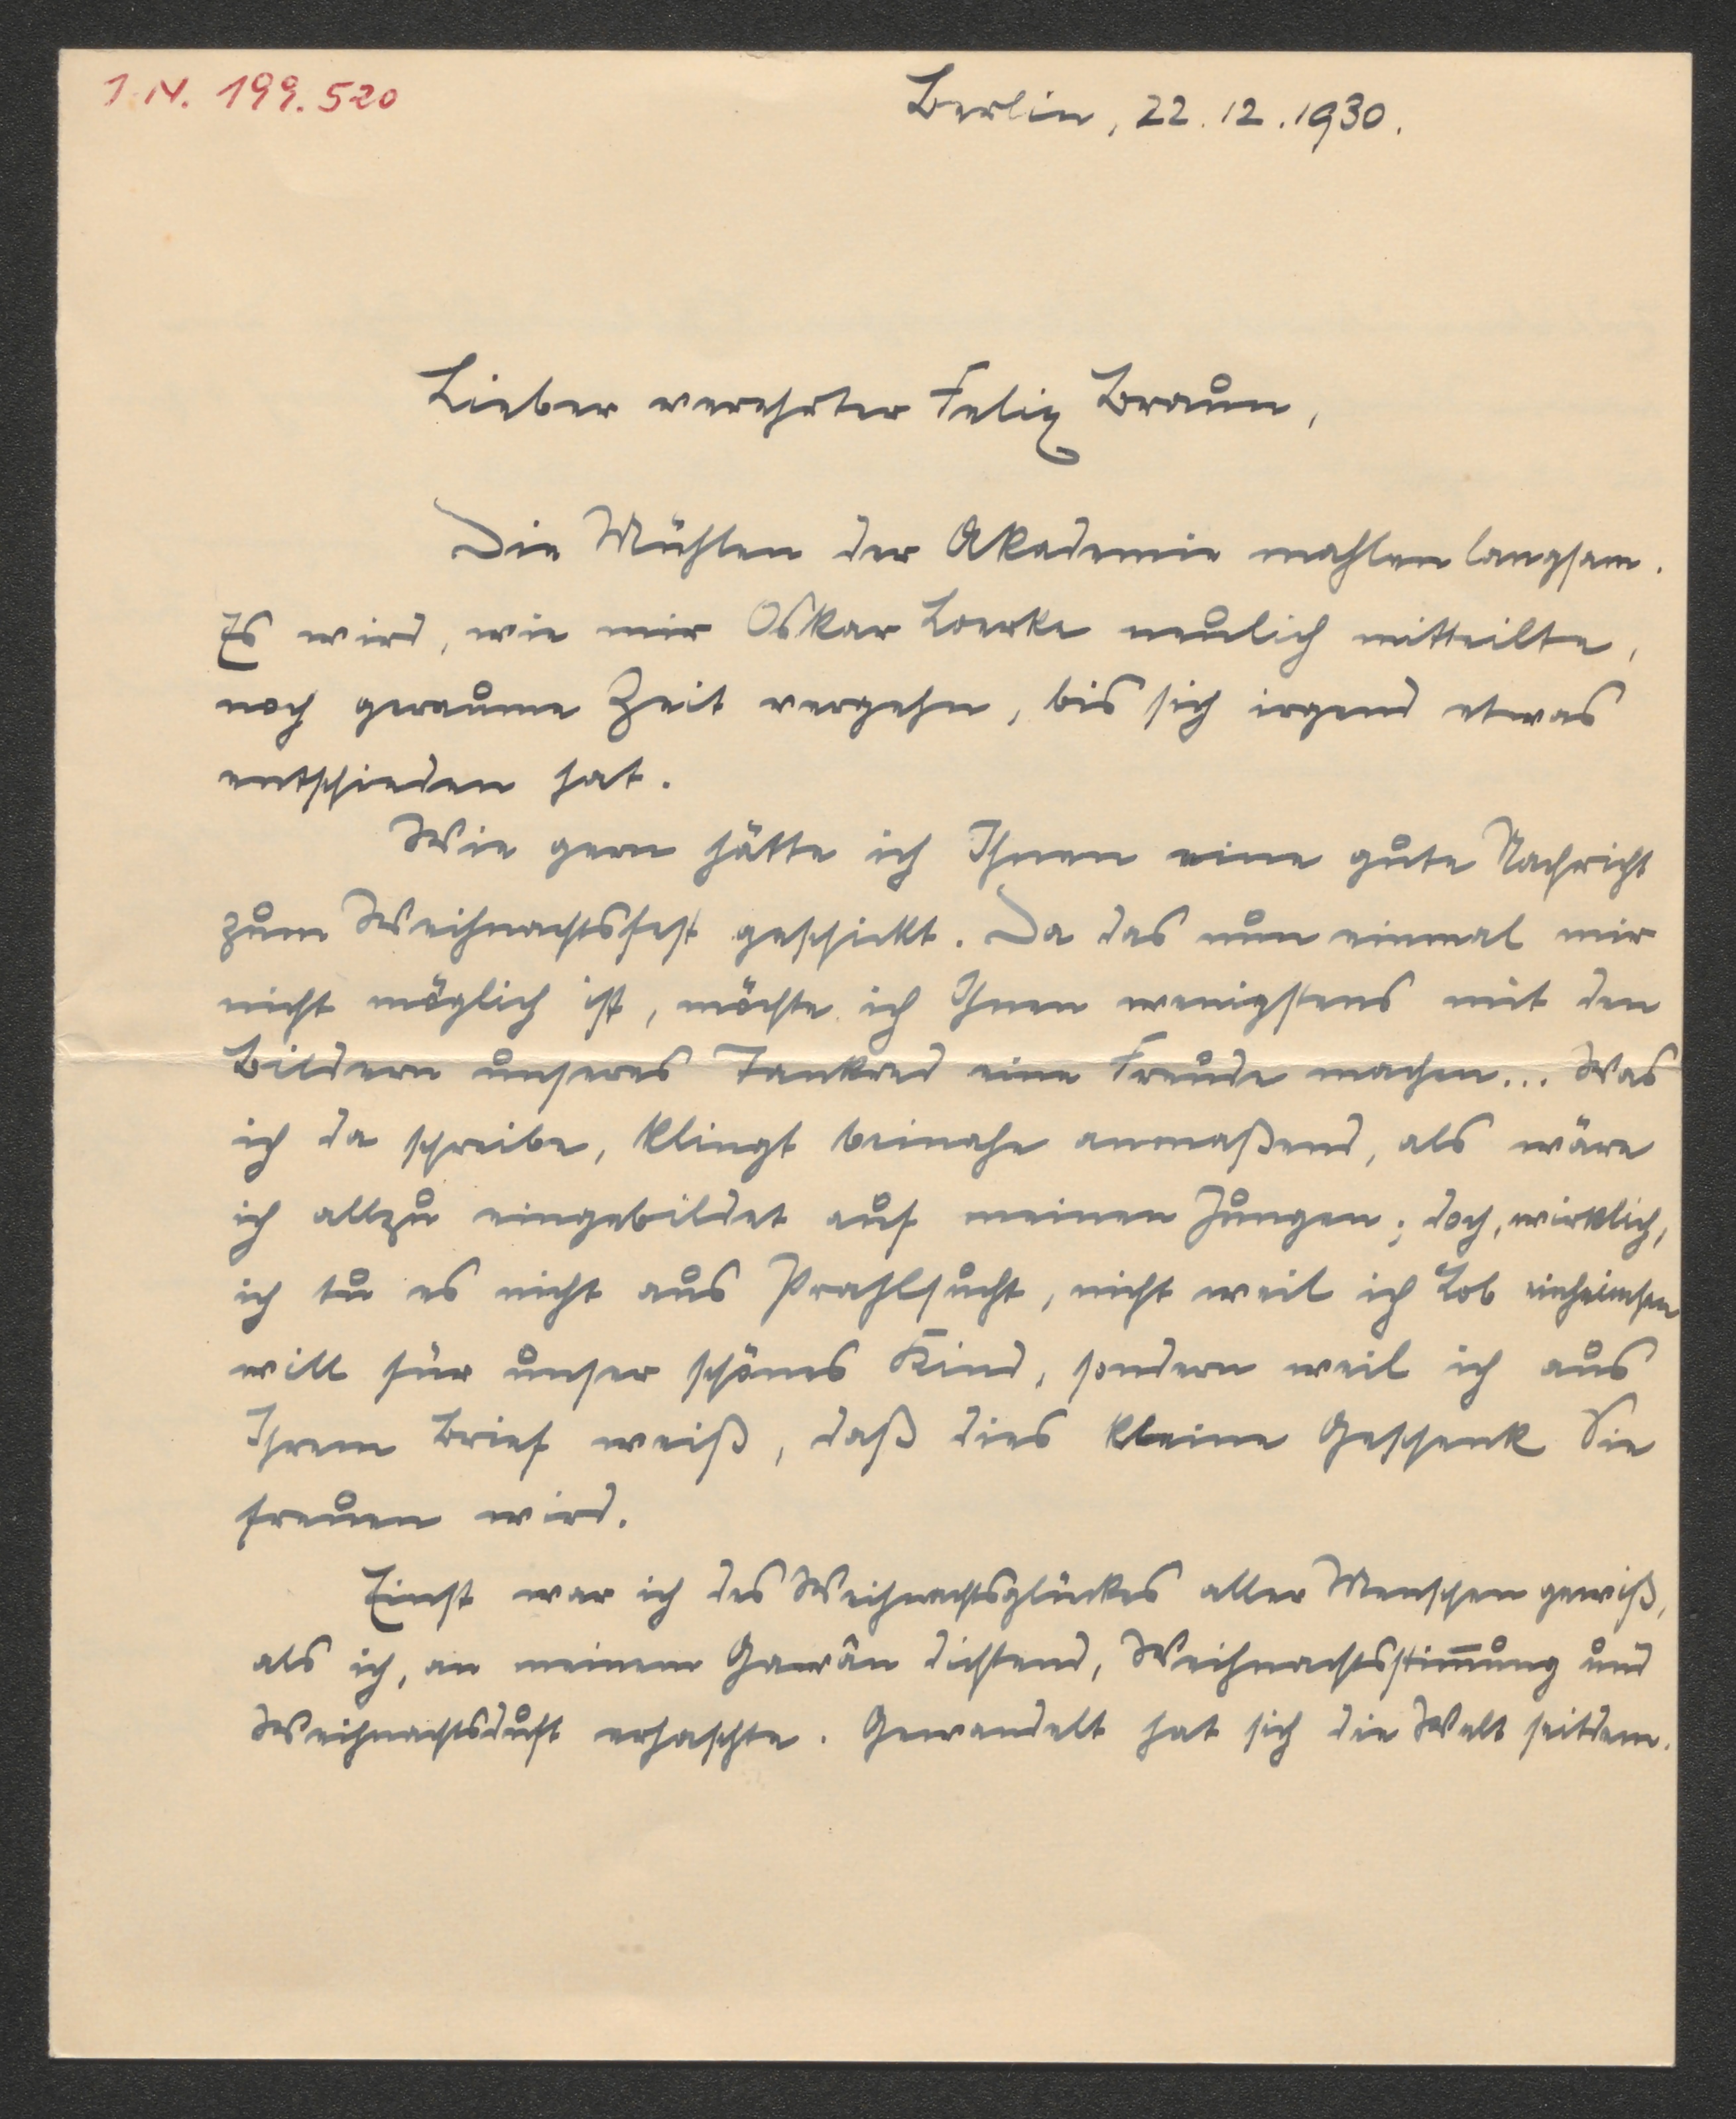 I.N. 199.520
Berlin, 22.12.1930.
Lieber verehrter Felix Braun,
Die Mühlen der Akademie mahlen langsam.
Es wird, wie mir Oskar Loerke neulich mitteilte,
noch geraume Zeit vergehn, bis sich irgend etwas
entschieden hat.
Wie gern hätte ich Ihnen eine gute Nachricht
zum Weihnachtsfest geschickt. Da das nun einmal mir
nicht möglich ist, möchte ich Ihnen wenigstens mit den
Bildern unseres Tankred eine Freude machen... Was
ich da schreibe, klingt beinahe anmaßend, als wäre
ich allzu eingebildet auf meinen Jungen; doch, wirklich,
ich tu es nicht aus Prahlsucht, nicht weil ich Lob einheimsen
will für unser schönes Kind, sondern weil ich aus
Ihrem Brief weiß, daß dies kleine Geschenk Sie
freuen wird.
Einst war ich des Weihnachtsglückes aller Menschen gewiß,
als ich, an meinem Gawân dichtend, Weihnachtsstim̅ung und
Weihnachtsduft erhaschte. Gewandelt hat sich die Welt seitdem.